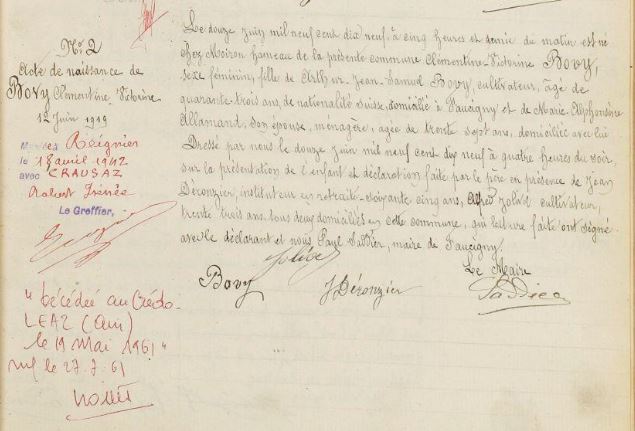 N° 2
Acte de naissance de
Bovy Clémentine Victorine
12 Juin 1919
Reignier
le 18 avril 1942
avec CRAUSAZ
Robert Irénée
Le Greffier,
"Décédée au Crédo
LEAZ (Ain)
le 19 Mai 1961"
le 27.7.61
Le douze Juin mil neuf cent dix neuf, à cinq heures et demie du matin est né
chez Moiron hameau de la présente commune Clémentine-Victorine Bovy,
sexe féminin, fille de Arthur Jean-Samuel Bovy, cultivateur, âgé de
quarante-trois ans, de nationalité suisse, domicilié à Faucigny et de Marie-Alphonsine
Allamand, son épouse, ménagère, âgée de trente sept ans, domiciliée avec lui
Dressé par nous le douze Juin mil neuf cent dix neuf à quatre heures du soir
sur la présentation de l'enfant et déclaration faite par le père en présence de Jean
Déronzier, instituteur en retraite soixante cinq ans, Alfred Jolivet cultivateur,
trente trois ans, tous deux domiciliés en cette commune, qui lecture faite ont signé
avec le déclarant et nous Saddier, maire de Faucigny.
Le Maire
Jolivet
Bovy
J Déronzier
Saddier